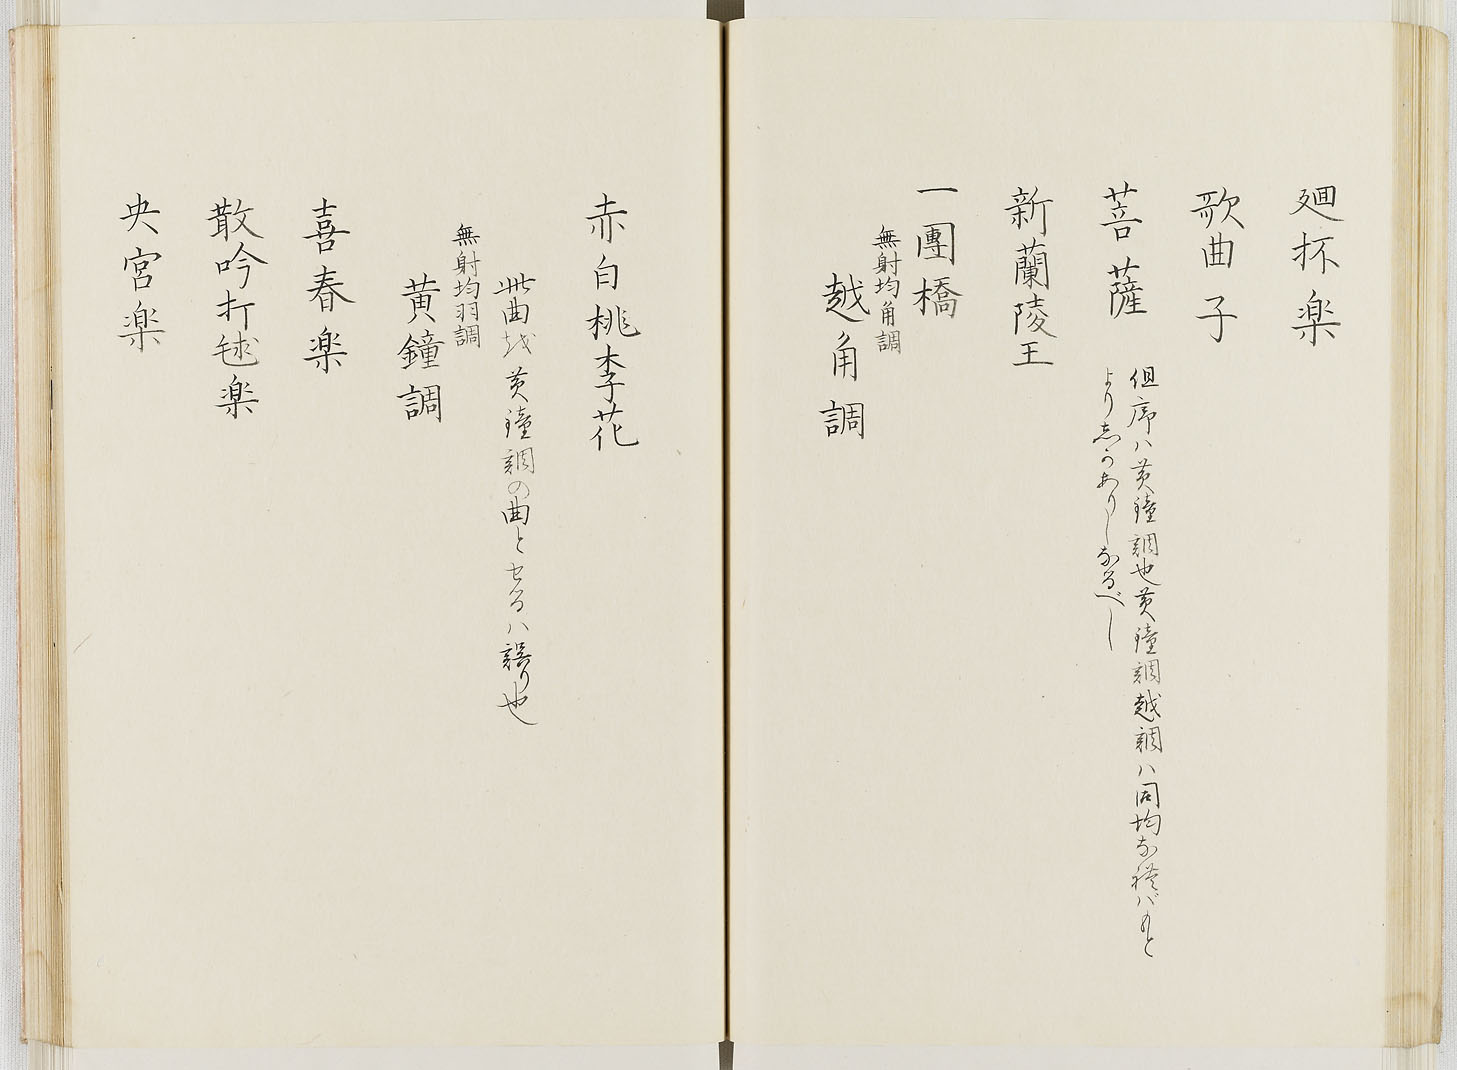 廻杯楽
歌曲子
菩薩
但序ハ黄鐘調也黄鐘調越調ハ同均なればもと
よりしかありしなるべし
新蘭陵王
一團橋
無射均角調
越角調
赤白桃李花
此曲を黄鐘調の曲とせるハ誤り也
無射均羽調
黄鐘調
喜春楽
散吟打毬楽
央宮楽